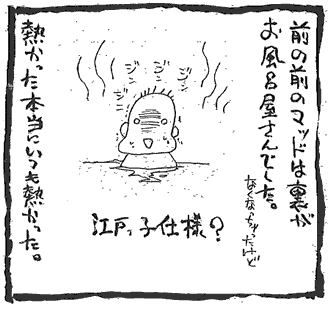 前の前のマッドは裏が
お風呂屋さんでした。
なくなっちゃったけど
ジー
ジー
ジー
江戸っ子仕様？
熱かった本当にいつも熱かった。